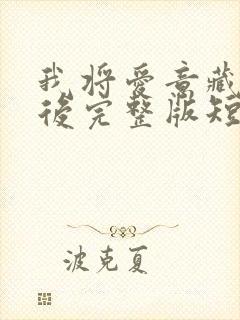 我将爱意藏
後完整版短
波克夏